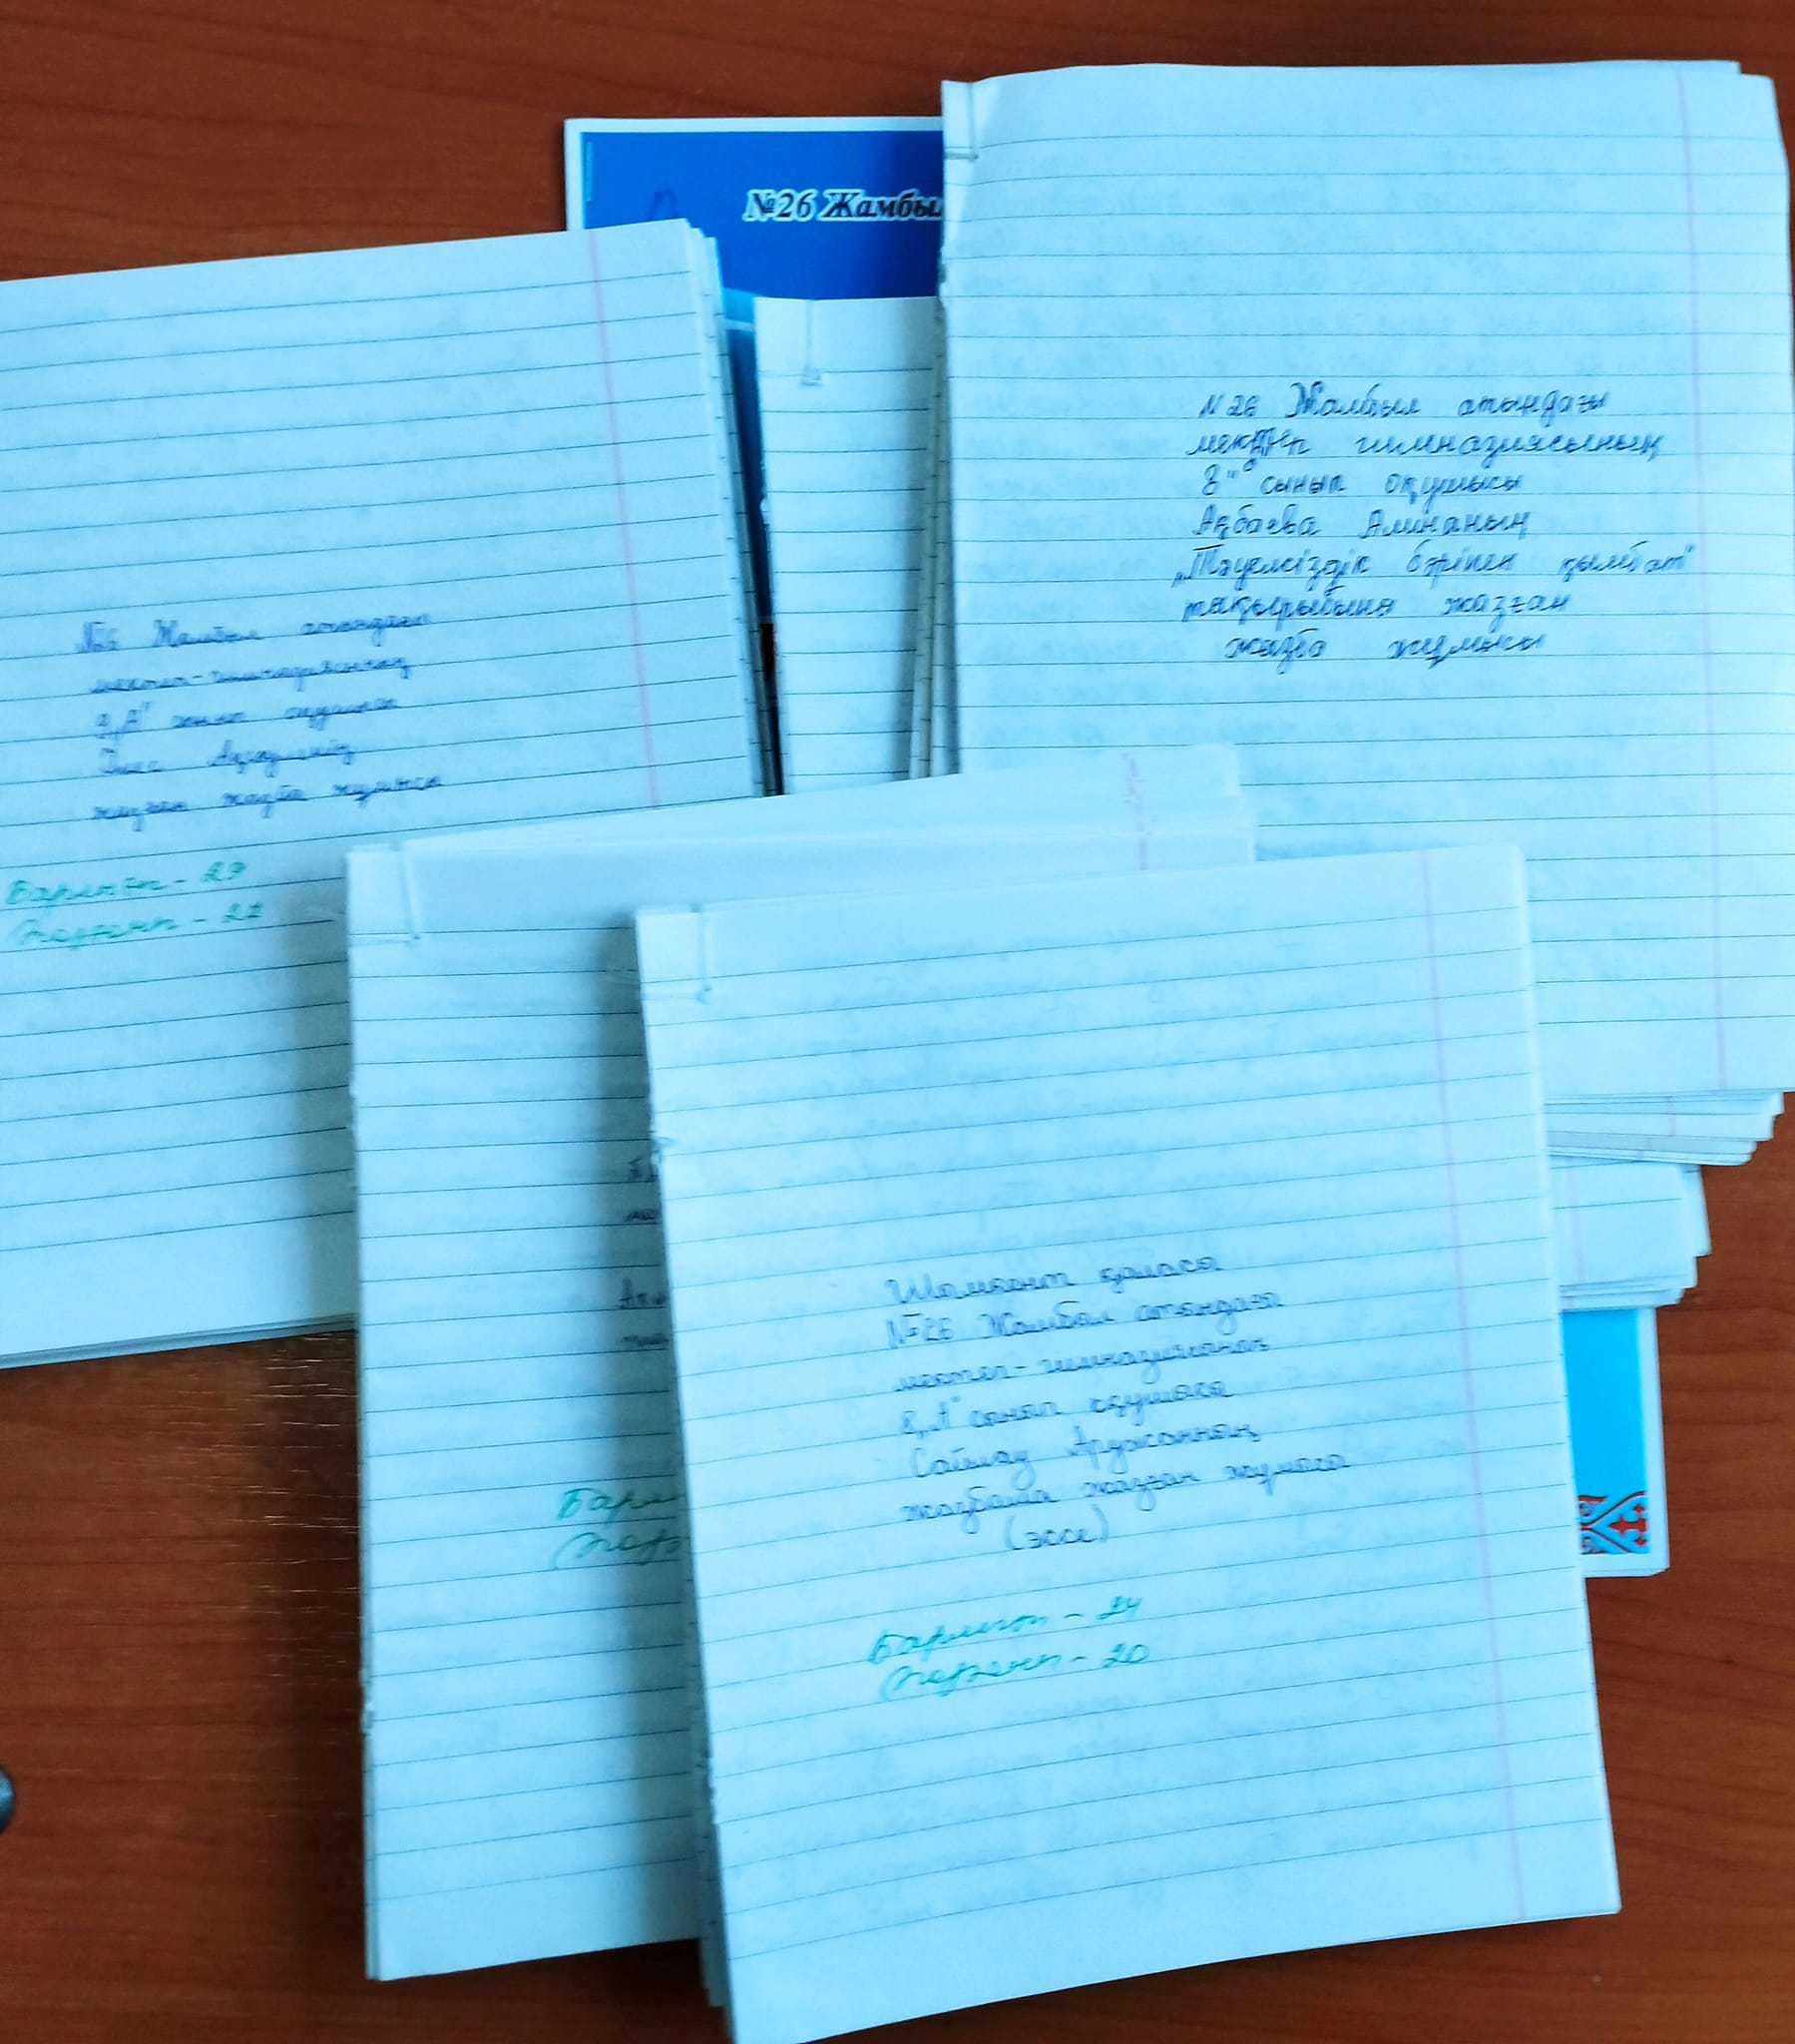 №26 Жамбыл
N26 Жамбыл атындағы
мектеп гимназиясының
8"а" сынып оқушысы
Ақбаева Алинаның
„Тәуелсіздік бәрінен қымбат"
тақырыбына жазған
жазба жұмысы
№26 Жамбыл атындағы
мектеп-гимназиясының
9„А" сынып оқушысы
Ақгүлнің
жазған жазба жұмысы
Барлығы - 29
Жазғаны - 22
Шымкент қаласы
№26 Жамбыл атындағы
мектеп-гимназиясының
8„А" сынып оқушысы
Сайлау Аружанның
жазбаша жазған жұмысы
(эссе)
Барлығы - 24
Жазғаны - 20